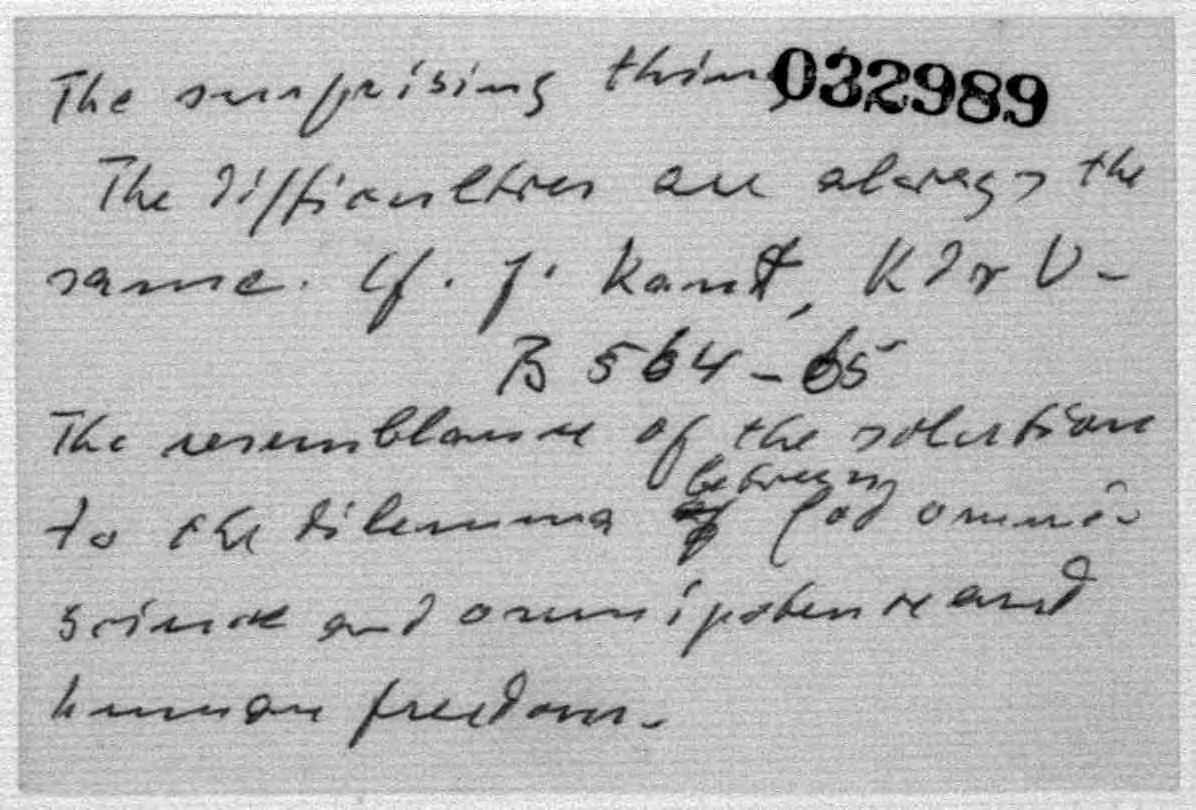 The surprising thing 032989
The difficulties are always the
same. Cf. f. Kant, K d r V -
B 564-65
The resemblance of the solution
between
to the dilemma God omni-
science and omnipotence and
human freedom.